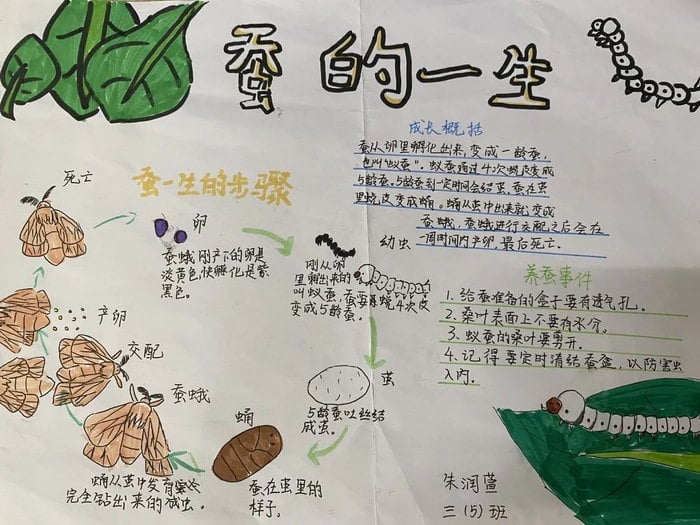 蚕的一生
成长概括
蚕从卵里孵化出来,变成一龄蚕,
也叫"蚁蚕"。蚁蚕通过4次蜕皮变成
5龄蚕。5龄蚕到一定时间会结茧,蚕在茧
里蜕皮变成蛹。蛹从茧中出来就变成
蚕蛾,蚕蛾进行交配之后会在
一周时间内产卵,最后死亡。
蚕一生的步骤
死亡
卵
蚕蛾刚产下的卵是
淡黄色,快孵化是紫
黑色。
幼虫
刚从卵
里孵出来的
叫蚁蚕,蚕要蜕4次皮
变成5龄蚕。
茧
5龄蚕吐丝结
成茧。
蛹
蚕在茧里的
样子。
蚕蛾
蛹从茧中发育
完全钻出来的成虫。
交配
产卵
养蚕事件
1.给蚕准备的盒子要有透气孔。
2.桑叶表面上不要有水分。
3.蚁蚕的桑叶要剪开。
4.记得要定时清结蚕盒,以防害虫
入内。
朱润萱
三(5)班